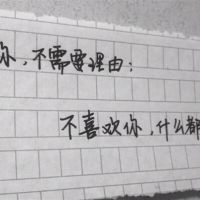 你，不需要理由；
不喜欢你，什么都